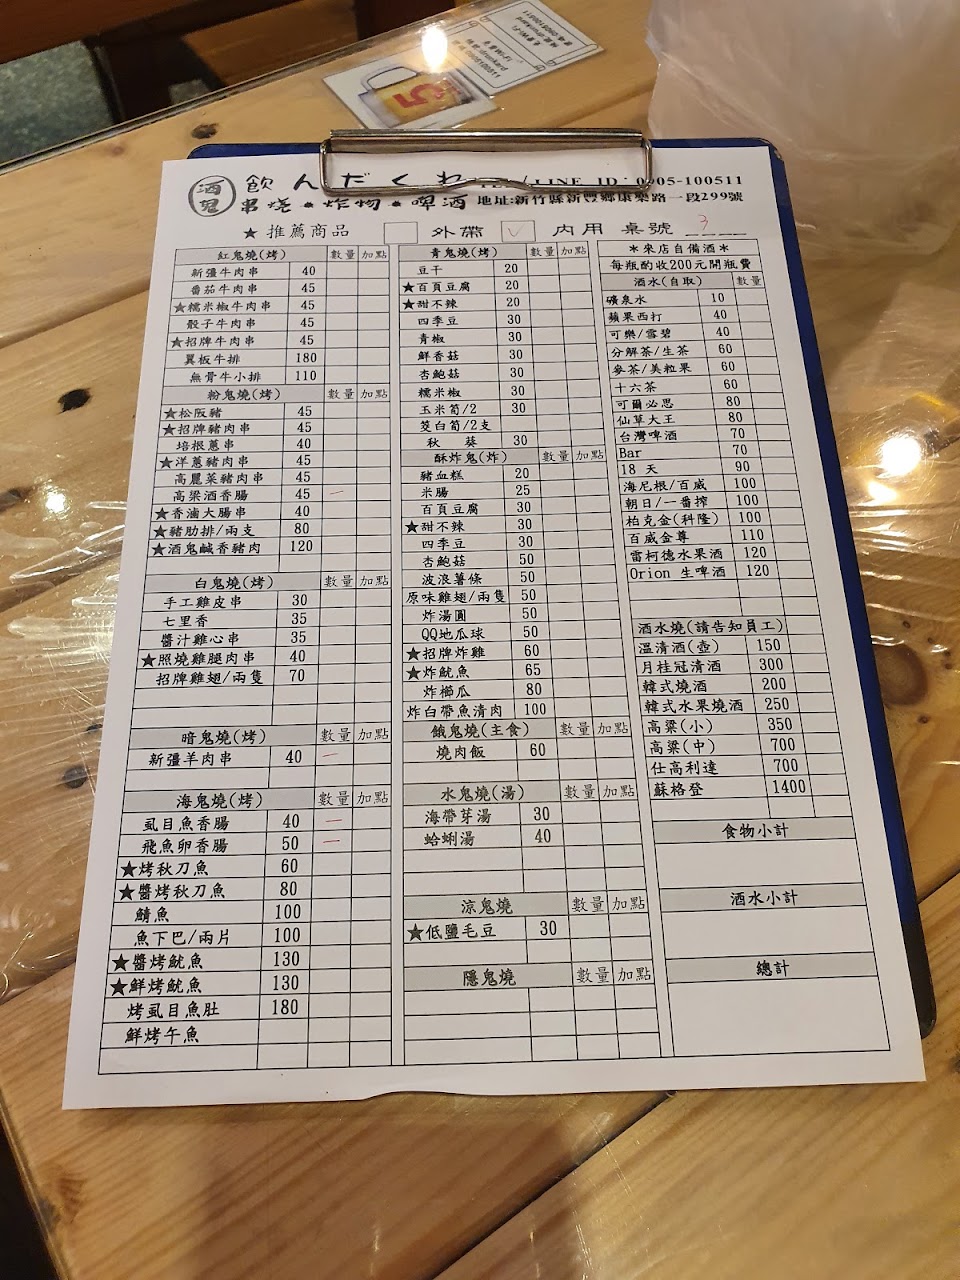 酒鬼
飲んだくれ TEL/LINE ID:0905-100511
串燒●炸物●啤酒 地址:新竹縣新豐鄉康樂路一段299號
★推薦商品 外帶 ✓ 內用 桌號 3
紅鬼燒(烤) 數量 加點
新疆牛肉串 40
番茄牛肉串 45
★糯米椒牛肉串 45
骰子牛肉串 45
★招牌牛肉串 45
翼板牛排 180
無骨牛小排 110
粉鬼燒(烤) 數量 加點
★松阪豬 45
★招牌豬肉串 45
培根蔥串 40
★洋蔥豬肉串 45
高麗菜豬肉串 45
高梁酒香腸 45 一
★香滷大腸串 40
★豬肋排/兩支 80
★酒鬼鹹香豬肉 120
白鬼燒(烤) 數量 加點
手工雞皮串 30
七里香 35
醬汁雞心串 35
★照燒雞腿肉串 40
招牌雞翅/兩隻 70
暗鬼燒(烤) 數量 加點
新疆羊肉串 40 一
海鬼燒(烤) 數量 加點
虱目魚香腸 40 一
飛魚卵香腸 50 一
★烤秋刀魚 60
★醬烤秋刀魚 80
鯖魚 100
魚下巴/兩片 100
★醬烤魷魚 130
★鮮烤魷魚 130
烤虱目魚肚 180
鮮烤午魚
青鬼燒(烤) 數量 加點
豆干 20
★百頁豆腐 20
★甜不辣 20
四季豆 30
青椒 30
鮮香菇 30
杏鮑菇 30
糯米椒 30
玉米筍/2 30
筊白筍/2支
秋 葵 30
酥炸鬼(炸) 數量 加點
豬血糕 20
米腸 25
百頁豆腐 30
★甜不辣 30
四季豆 30
杏鮑菇 50
波浪薯條 50
原味雞翅/兩隻 50
炸湯圓 50
QQ地瓜球 50
★招牌炸雞 60
★炸魷魚 65
炸櫛瓜 80
炸白帶魚清肉 100
餓鬼燒(主食) 數量 加點
燒肉飯 60
水鬼燒(湯) 數量 加點
海帶芽湯 30
蛤蜊湯 40
涼鬼燒 數量 加點
★低鹽毛豆 30
隱鬼燒 數量 加點
＊來店自備酒＊
每瓶酌收200元開瓶費
酒水(自取) 數量
礦泉水 10
蘋果西打 40
可樂/雪碧 40
分解茶/生茶 60
麥茶/美粒果 60
十六茶 60
可爾必思 80
仙草大王 80
台灣啤酒 70
Bar 70
18 天 90
海尼根/百威 100
朝日/一番搾 100
柏克金(科隆) 100
百威金尊 110
雷柯德水果酒 120
Orion 生啤酒 120
酒水燒(請告知員工)
溫清酒(壺) 150
月桂冠清酒 300
韓式燒酒 200
韓式水果燒酒 250
高梁(小) 350
高梁(中) 700
仕高利達 700
蘇格登 1400
食物小計
酒水小計
總計